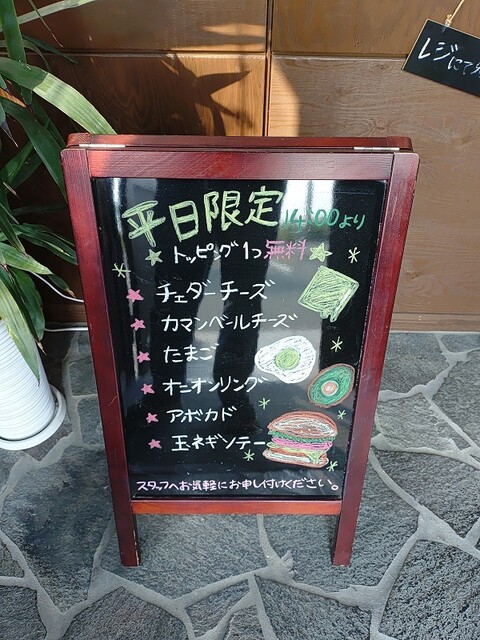 平日限定 14:00より
☆トッピング1つ無料☆
★ チェダーチーズ
★ カマンベールチーズ
★ たまご
★ オニオンリング
★ アボカド
★ 玉ネギソテー
スタッフへお気軽にお申し付けください。
レジにて